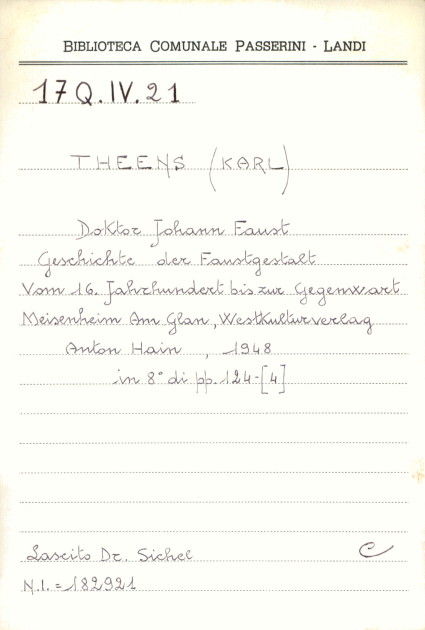 BIBLIOTECA COMUNALE PASSERINI - LANDI
17Q.IV.21
THEENS (KARL)
Doktor Johann Faust
Geschichte der Faustgestalt
Vom 16. Jahrhundert bis zur Gegenwart
Meisenheim Am Glan, Westkulturverlag
Anton Hain, 1948
in 8° di pp. 124-[4]
Lascito Dr. Sichel
C
N.I. = 182921